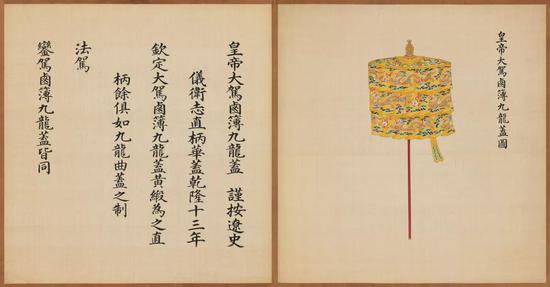 皇帝大駕鹵簿九龍蓋圖
皇帝大駕鹵簿九龍蓋 謹按遼史
儀衛志直柄華蓋乾隆十三年
欽定大駕鹵簿九龍蓋黃緞為之直
柄餘俱如九龍曲蓋之制
法駕
鑾駕鹵簿九龍蓋皆同